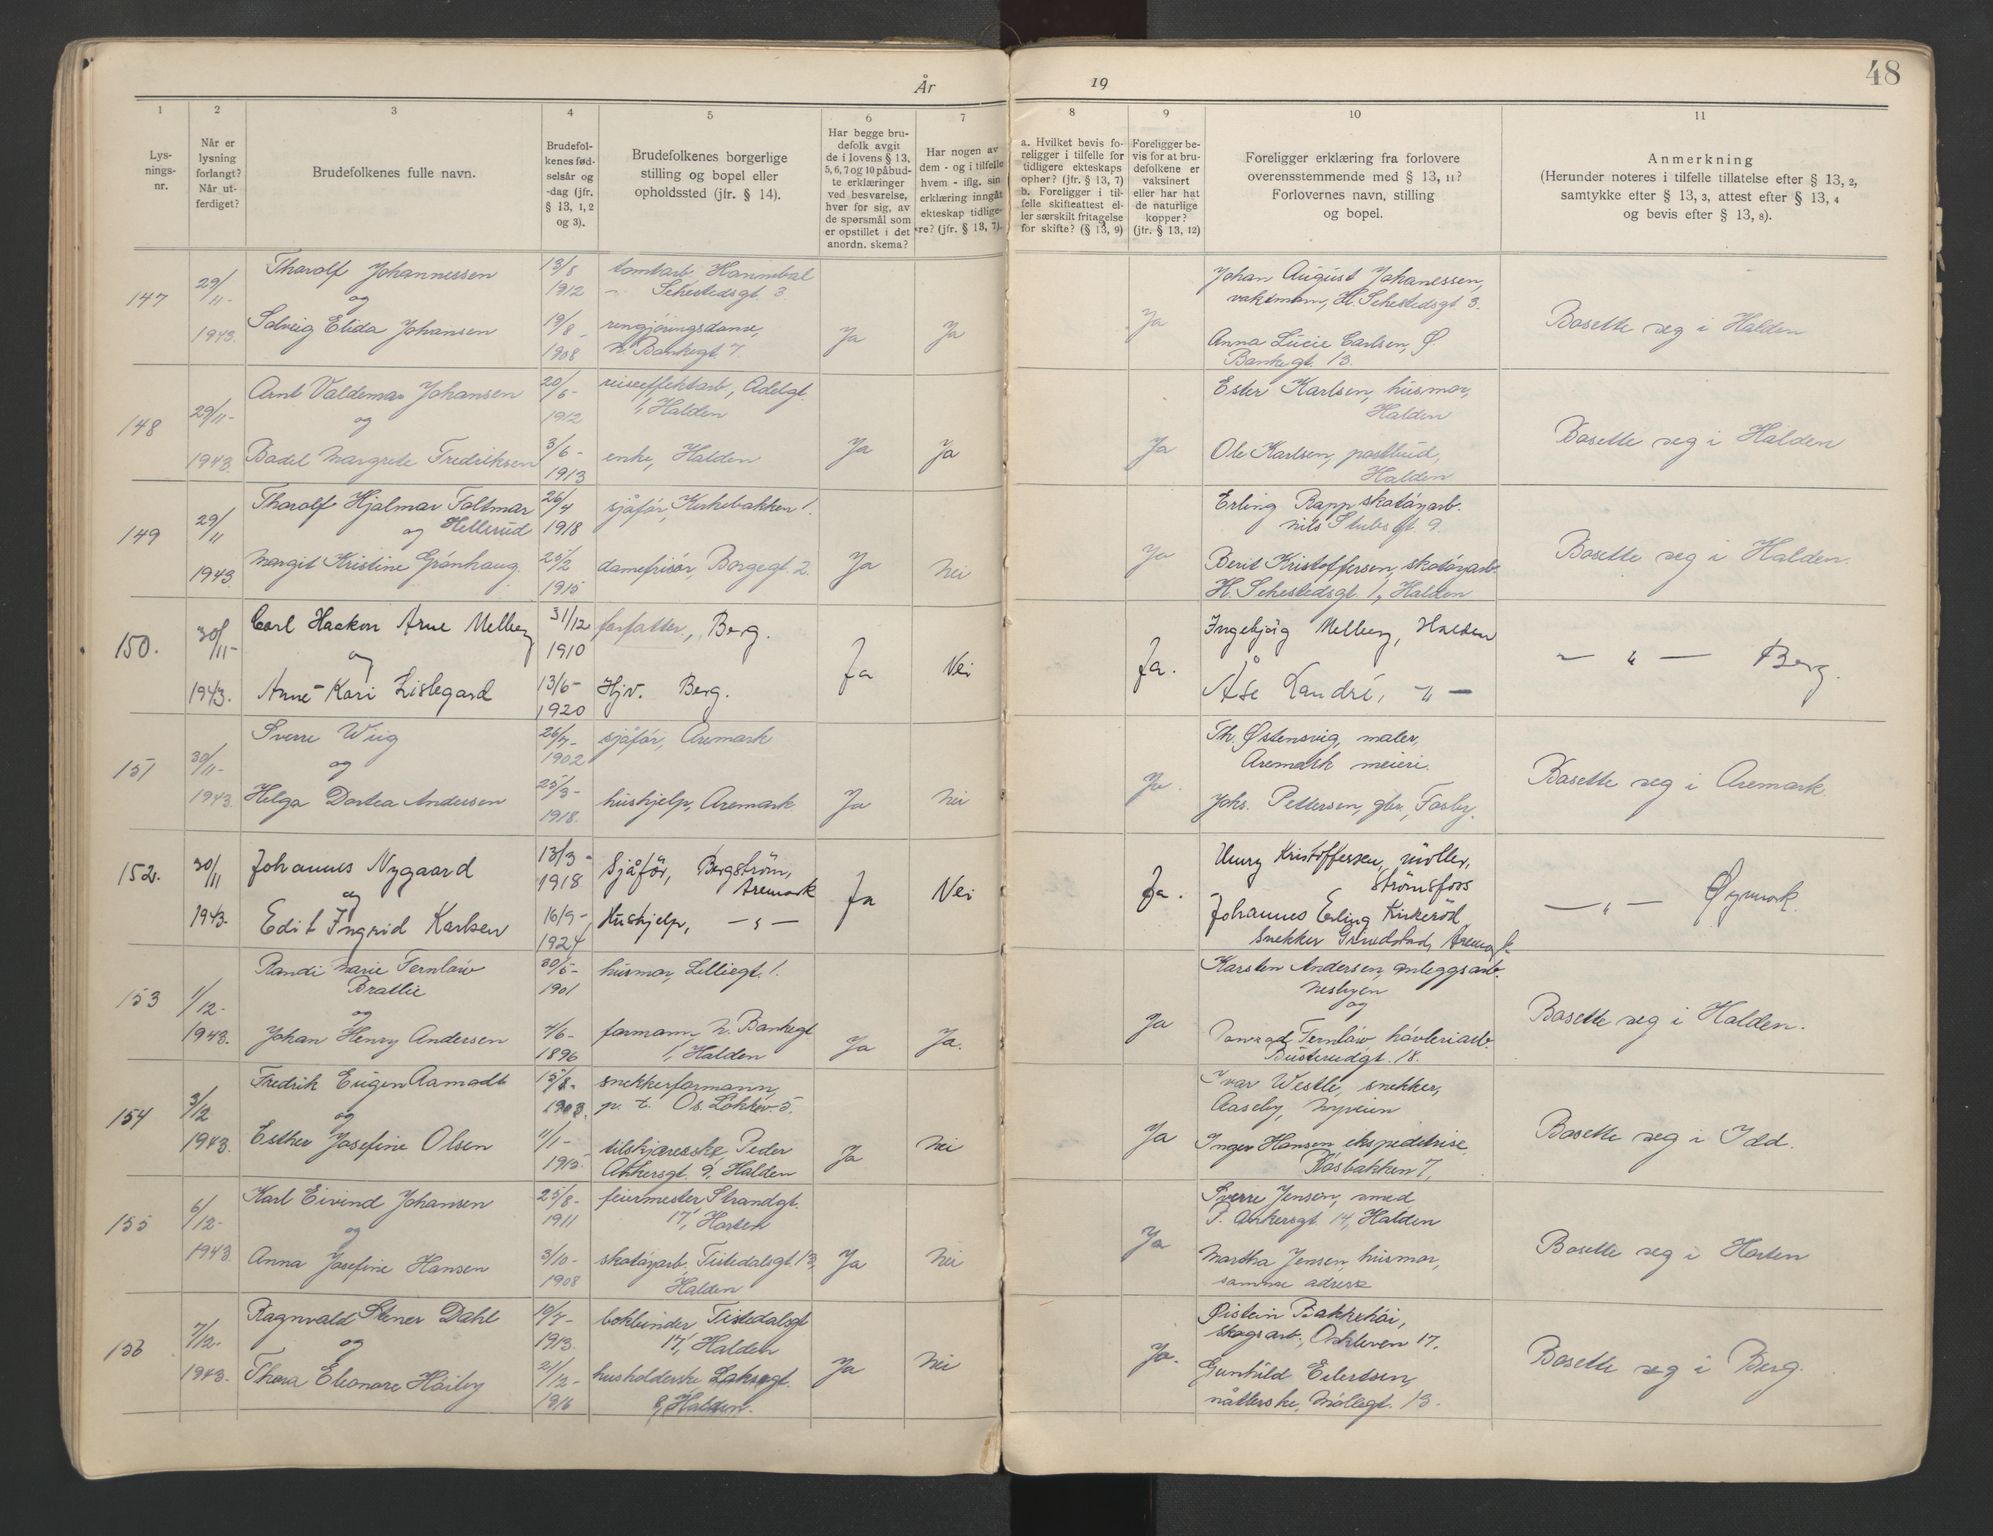 År 19
48
1
2
3
4
5
6
7
8
9
10
11
Lys-
nings-
nr.
Når er
lysning
forlangt?
Når ut-
ferdiget?
Brudefolkenes fulle navn.
Brudefol-
kenes fød-
selsår og
-dag (jfr.
§ 13, 1, 2
og 3).
Brudefolkenes borgerlige
stilling og bopel eller
opholdssted (jfr. § 14).
Har begge bru-
defolk avgit
de i lovens § 13,
5, 6, 7 og 10 påbud-
te erklæringer
ved besvarelse,
hver for sig, av
de spørsmål som
er opstillet i det
anordn. skema?
Har nogen av
dem - og i tilfelle
hvem - iflg. sin
erklæring inngåt
ekteskap tidlige-
re? (jfr. § 13, 7).
a. Hvilket bevis fo-
religger i tilfelle for
tidligere ekteskaps
ophør? (jfr. § 13, 7)
b. Foreligger i til-
felle skifteattest el-
ler særskilt fritagelse
for skifte? (§ 13, 9)
Foreligger be-
vis for at bru-
defolkene er
vaksinert
eller har hat
de naturlige
kopper?
(jfr. § 13, 12)
Foreligger erklæring fra forlovere
overensstemmende med § 13, 11?
Forlovernes navn, stilling
og bopel.
Anmerkning
(Herunder noteres i tilfelle tillatelse efter § 13, 2,
samtykke efter § 13, 3, attest efter § 13, 4
og bevis efter § 13, 8).
147
29/11-
1943.
Thorolf Johannessen
og
Solveig Elida Johansen
13/8
1912
19/8-
1908
tomtarb. Hannibal
Sehestedsgt. 3.
rengjøringsdame,
N. Bankegt. 7.
Ja
Ja
Ja
Johan August Johanessen,
vaktmann, H. Sehestedsgt. 3.
Anna Lucie Carlsen, Ø.
Bankegt. 13.
Bosette seg i Halden
148
29/11-
1943.
Arnt Valdemar Johansen
og
Bodel Margrete Fredriksen
20/6-
1912
3/6-
1913
reiseeffektarb, Adelgt.
1, Halden
enke, Halden
Ja
Ja
Ja
Ester Karlsen, husmor,
Halden
Ole Karlsen, postbud,
Halden
Bosette seg i Halden
149
29/11
1943.
Thorolf Hjalmar Foltmar
og Hellerud
Margit Kristine Grønhaug.
26/4
1918
25/2
1915
sjåfør, Kirkebakken 1.
damefrisør, Borgegt. 2.
Ja
Nei
Ja
Erling Rapp skotøyarb.
Nils Stubsgt 9.
Berit Kristoffersen, skotøyarb.
H. Sehestedsgt. 1, Halden
Bosette seg i Halden.
150.
30/11-
1943.
Carl Haakon Arne Melberg
og
Anne-Kari Lislegard
31/12
1910
13/6-
1920
forfatter, Berg.
Hjv. Berg.
Ja
Nei
Ja.
Ingebjørg Melberg, Halden
Åse Landré, -"-
— " — Berg.
151
30/11-
1943.
Sverre Wiig
og
Helga Dortea Andersen
26/7-
1902
25/3-
1918.
sjåfør, Aremark
hushjelp, Aremark.
Ja
Nei
Ja.
Th. Østensvig, maler,
Aremark meieri.
Johs. Pettersen, gbr., Fosby.
Bosette seg i Aremark.
152.
30/11
1943.
Johannes Nygaard
og
Edit Ingrid Karlsen
13/3-
1918
16/9-
1924
Sjåfør, Bergstrøm,
Aremark
Hushjelp, -"-
Ja
Nei
Ja.
Henry Kristoffersen, møller,
Strømsfoss
Johannes Erling Kirkerød
snekker Grindstad, Aremark
— " — Øymark.
153
1/12-
1943.
Randi Marie Fernlöw
Bratlie
og
Johan Henry Andersen
30/5-
1901
4/6-
1896
husmor, Lilliegt. 1.
formann, N. Bankegt
1, Halden
Ja
Ja.
Ja
Karsten Andersen, anleggsarb.
Nesbyen
og
Konrad Fernlöw høvleriarb.
Busterudgt. 18.
Bosette seg i Halden.
154
3/12
1943.
Fredrik Eugen Aamodt
og
Esther Josefine Olsen
15/8-
1903.
4/1-
1915
snekkerformann,
p. t. Os. Lokkev. 5.
tilskjærerske, Peder
Ankersgt 9, Halden
Ja
Nei
Ja
Ivar Westle, snekker,
Aaseby, Nyveien
Inger Hansen ekspeditrise,
Røsbakken 7,
Bosette seg i Idd.
155
6/12-
1943.
Karl Eivind Johansen
og
Anna Josefine Hansen
25/8-
1911
3/10-
1908
feiermester Strandgt.
17, Horten
skotøyarb, Tistedalsgt. 13,
Halden
Ja
Nei
Ja
Sverre Jensen, smed
P. Ankersgt. 14, Halden
Martha Jensen, husmor,
samme adresse
Bosette seg i Horten
156
7/12-
1943.
Ragnvald Stener Dahl
og
Thora Eleonore Høiby
19/7-
1913.
21/12-
1916
bokbinder Tistedalsgt
17, Halden
husholderske Laksegt.
8, Halden.
Ja
Nei
Ja.
Øistein Bakkehøi,
skogsarb., Oskleven 17.
Gunhild Eilertsen,
nåtterske, Møllegt. 13.
Bosette seg i Berg.